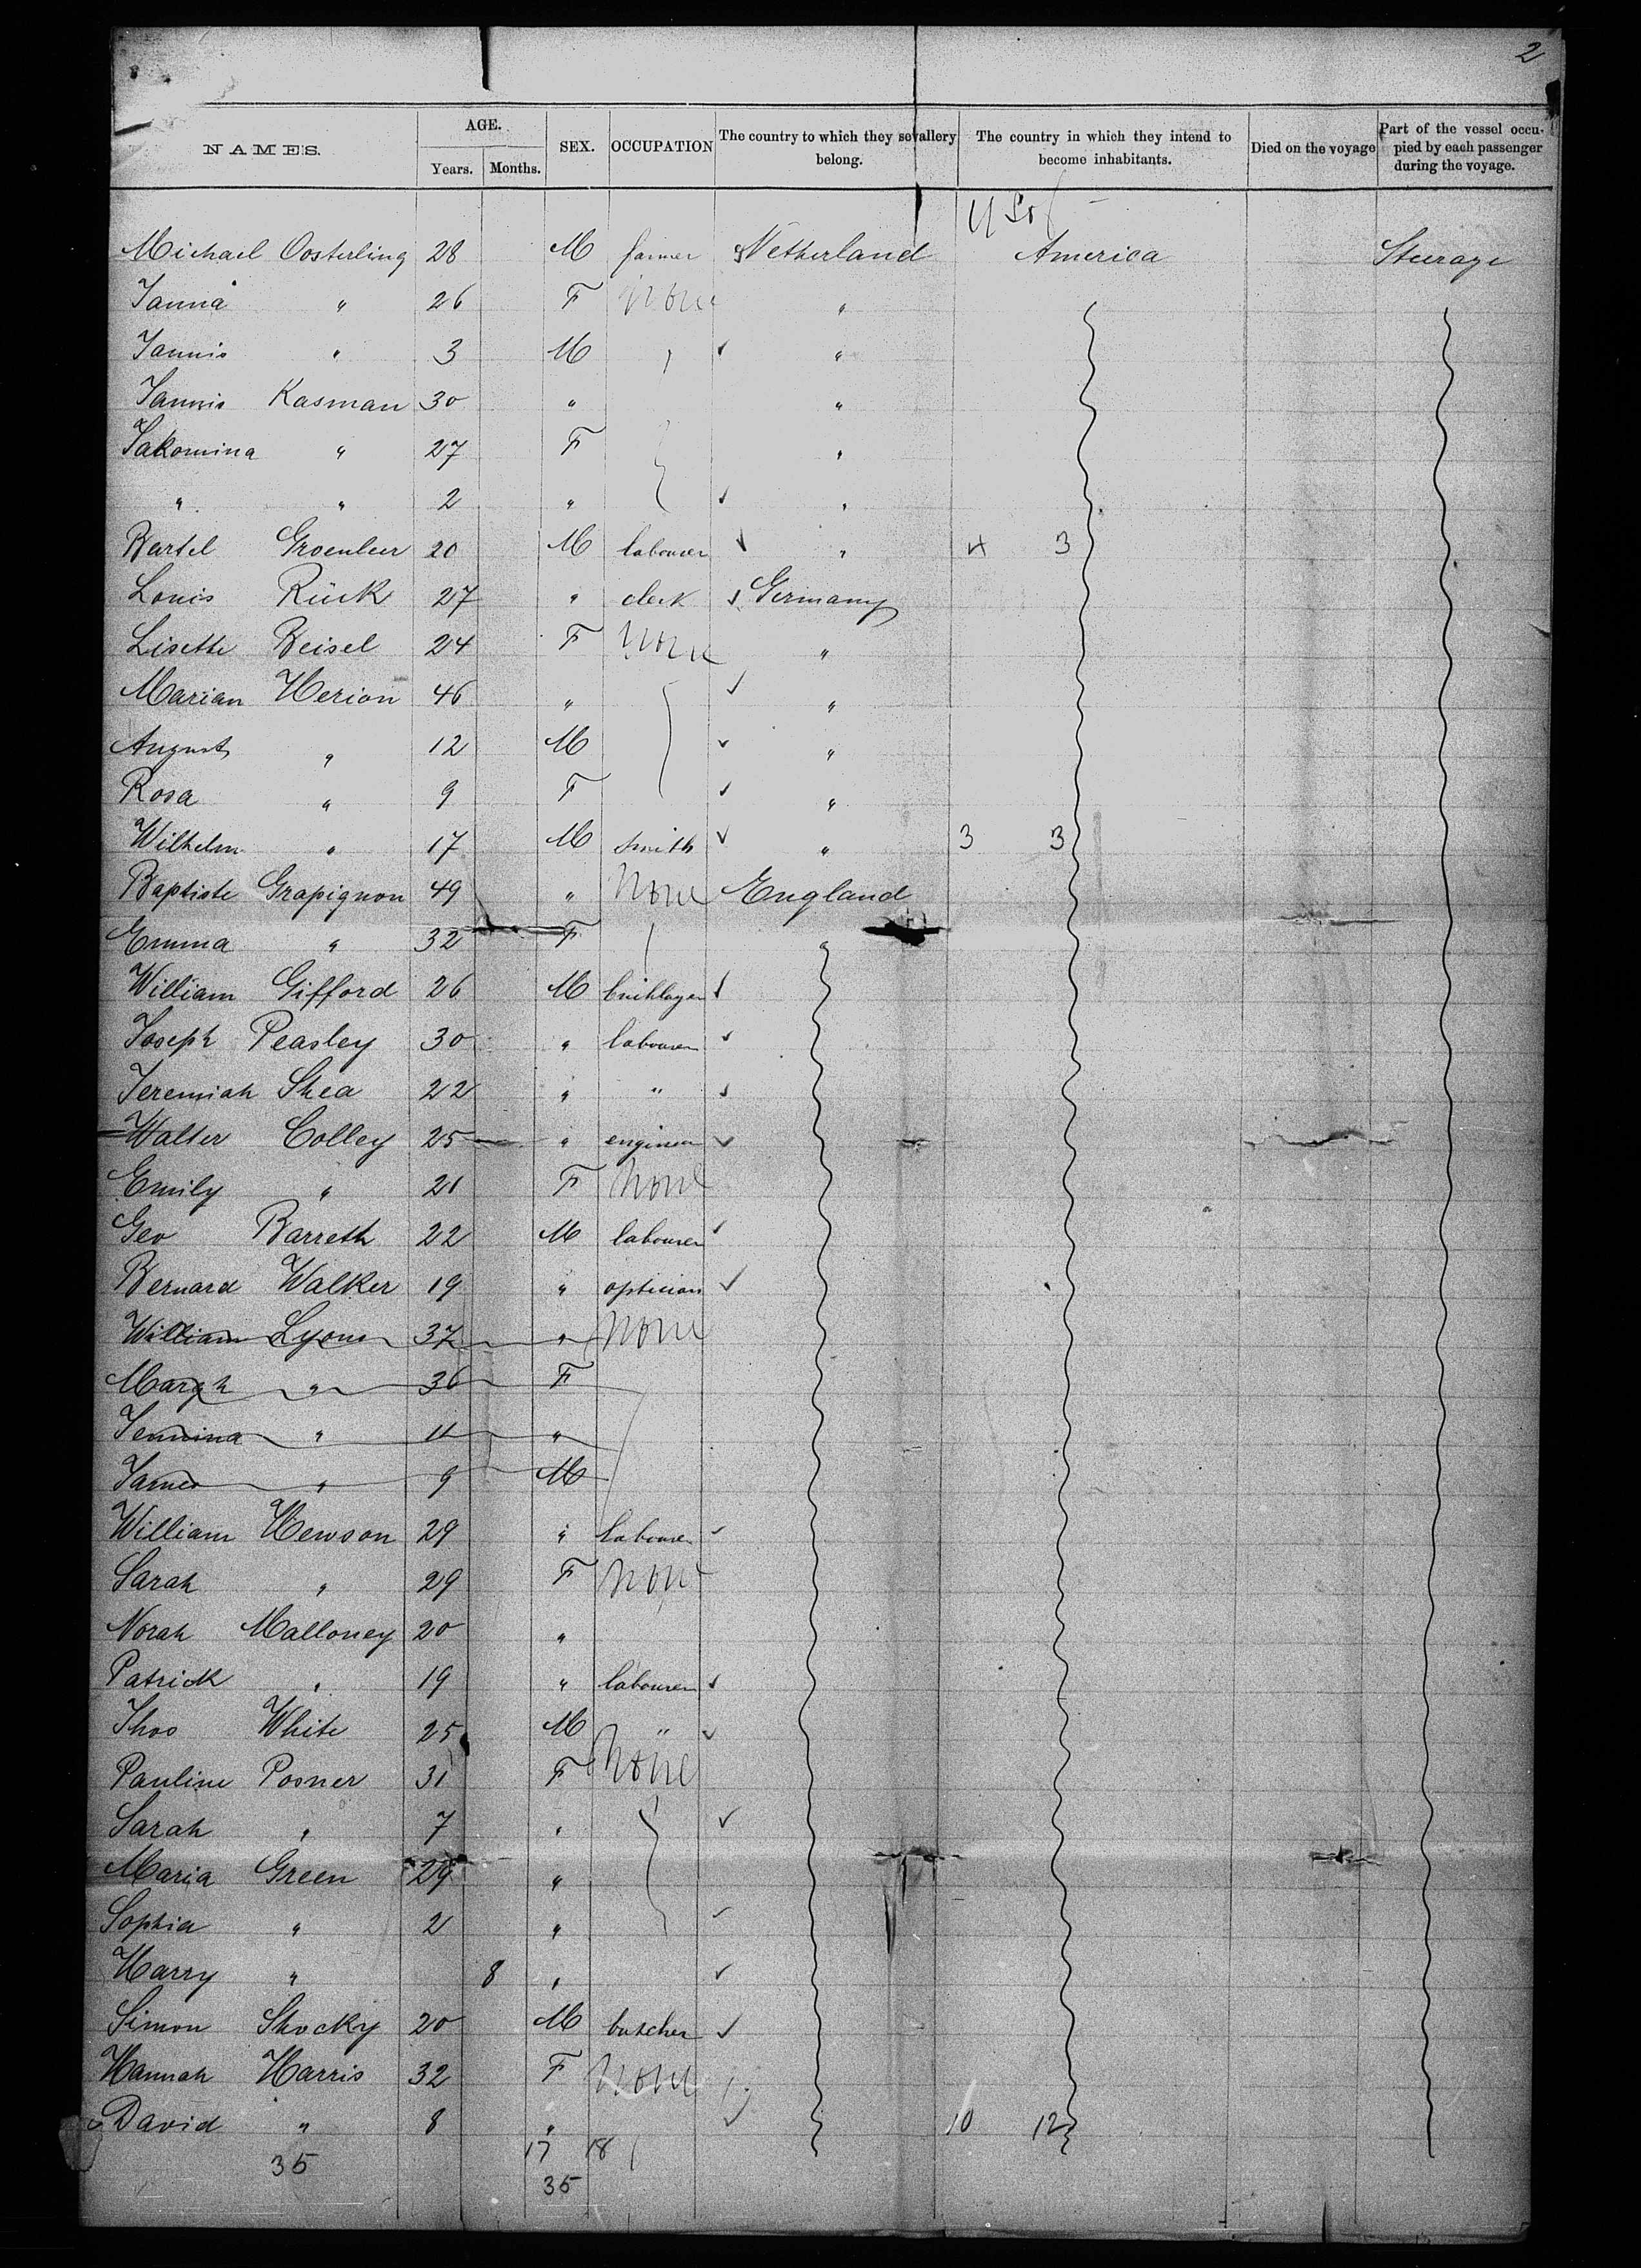 2
NAMES. AGE. Years. Months. SEX. OCCUPATION The country to which they sevallery belong. The country in which they intend to become inhabitants. Died on the voyage Part of the vessel occupied by each passenger during the voyage.
Michael Oosterling 28 M farmer Netherland America Steerage
Janna " 26 F None "
Jannis " 3 M "
Jannis Kasman 30 " "
Jakomina " 27 F "
" " 2 " "
Bartel Groenleer 20 M labourer " 4 3
Louis Rück 27 " clerk Germany
Lisette Beisel 24 F None "
Marian Herion 46 " "
August " 12 M "
Rosa " 9 F "
Wilhelm " 17 M smith " 3 3
Baptiste Grapignon 49 " None England
Emma " 32 F "
William Gifford 26 M
Joseph Peasley 30 " labourer
Jeremiah Shea 22 " "
Walter Colley 25 " engineer
Emily " 21 F None
Geo Barreth 22 M labourer
Bernard Walker 19 " optician
William Lyons 37 " None
Margh " 36 F
Jennina " 11 "
James " 9 M
William Hewson 29 " labourer
Sarah " 29 F None
Norah Malloney 20 "
Patrick " 19 " labourer
Thos White 25 M "
Pauline Posner 31 F None
Sarah " 7 "
Maria Green 29 "
Sophia " 2 "
Harry " 8 "
Simon Shocky 20 M butcher
Hannah Harris 32 F None
David " 8 " 10 12
35 17 18
35